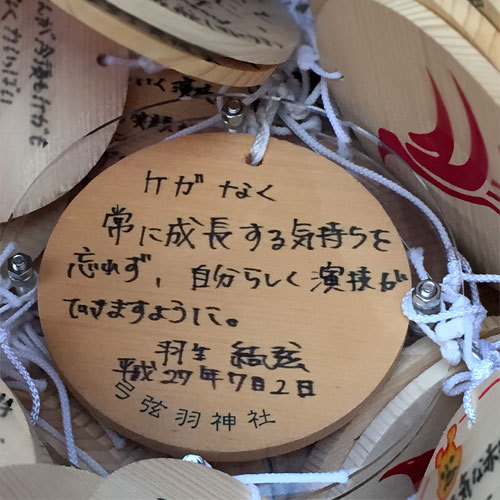 ケガなく
常に成長する気持ちを
忘れず、自分らしく演技が
できますように。
羽生結弦
平成27年7月2日
弓弦羽神社